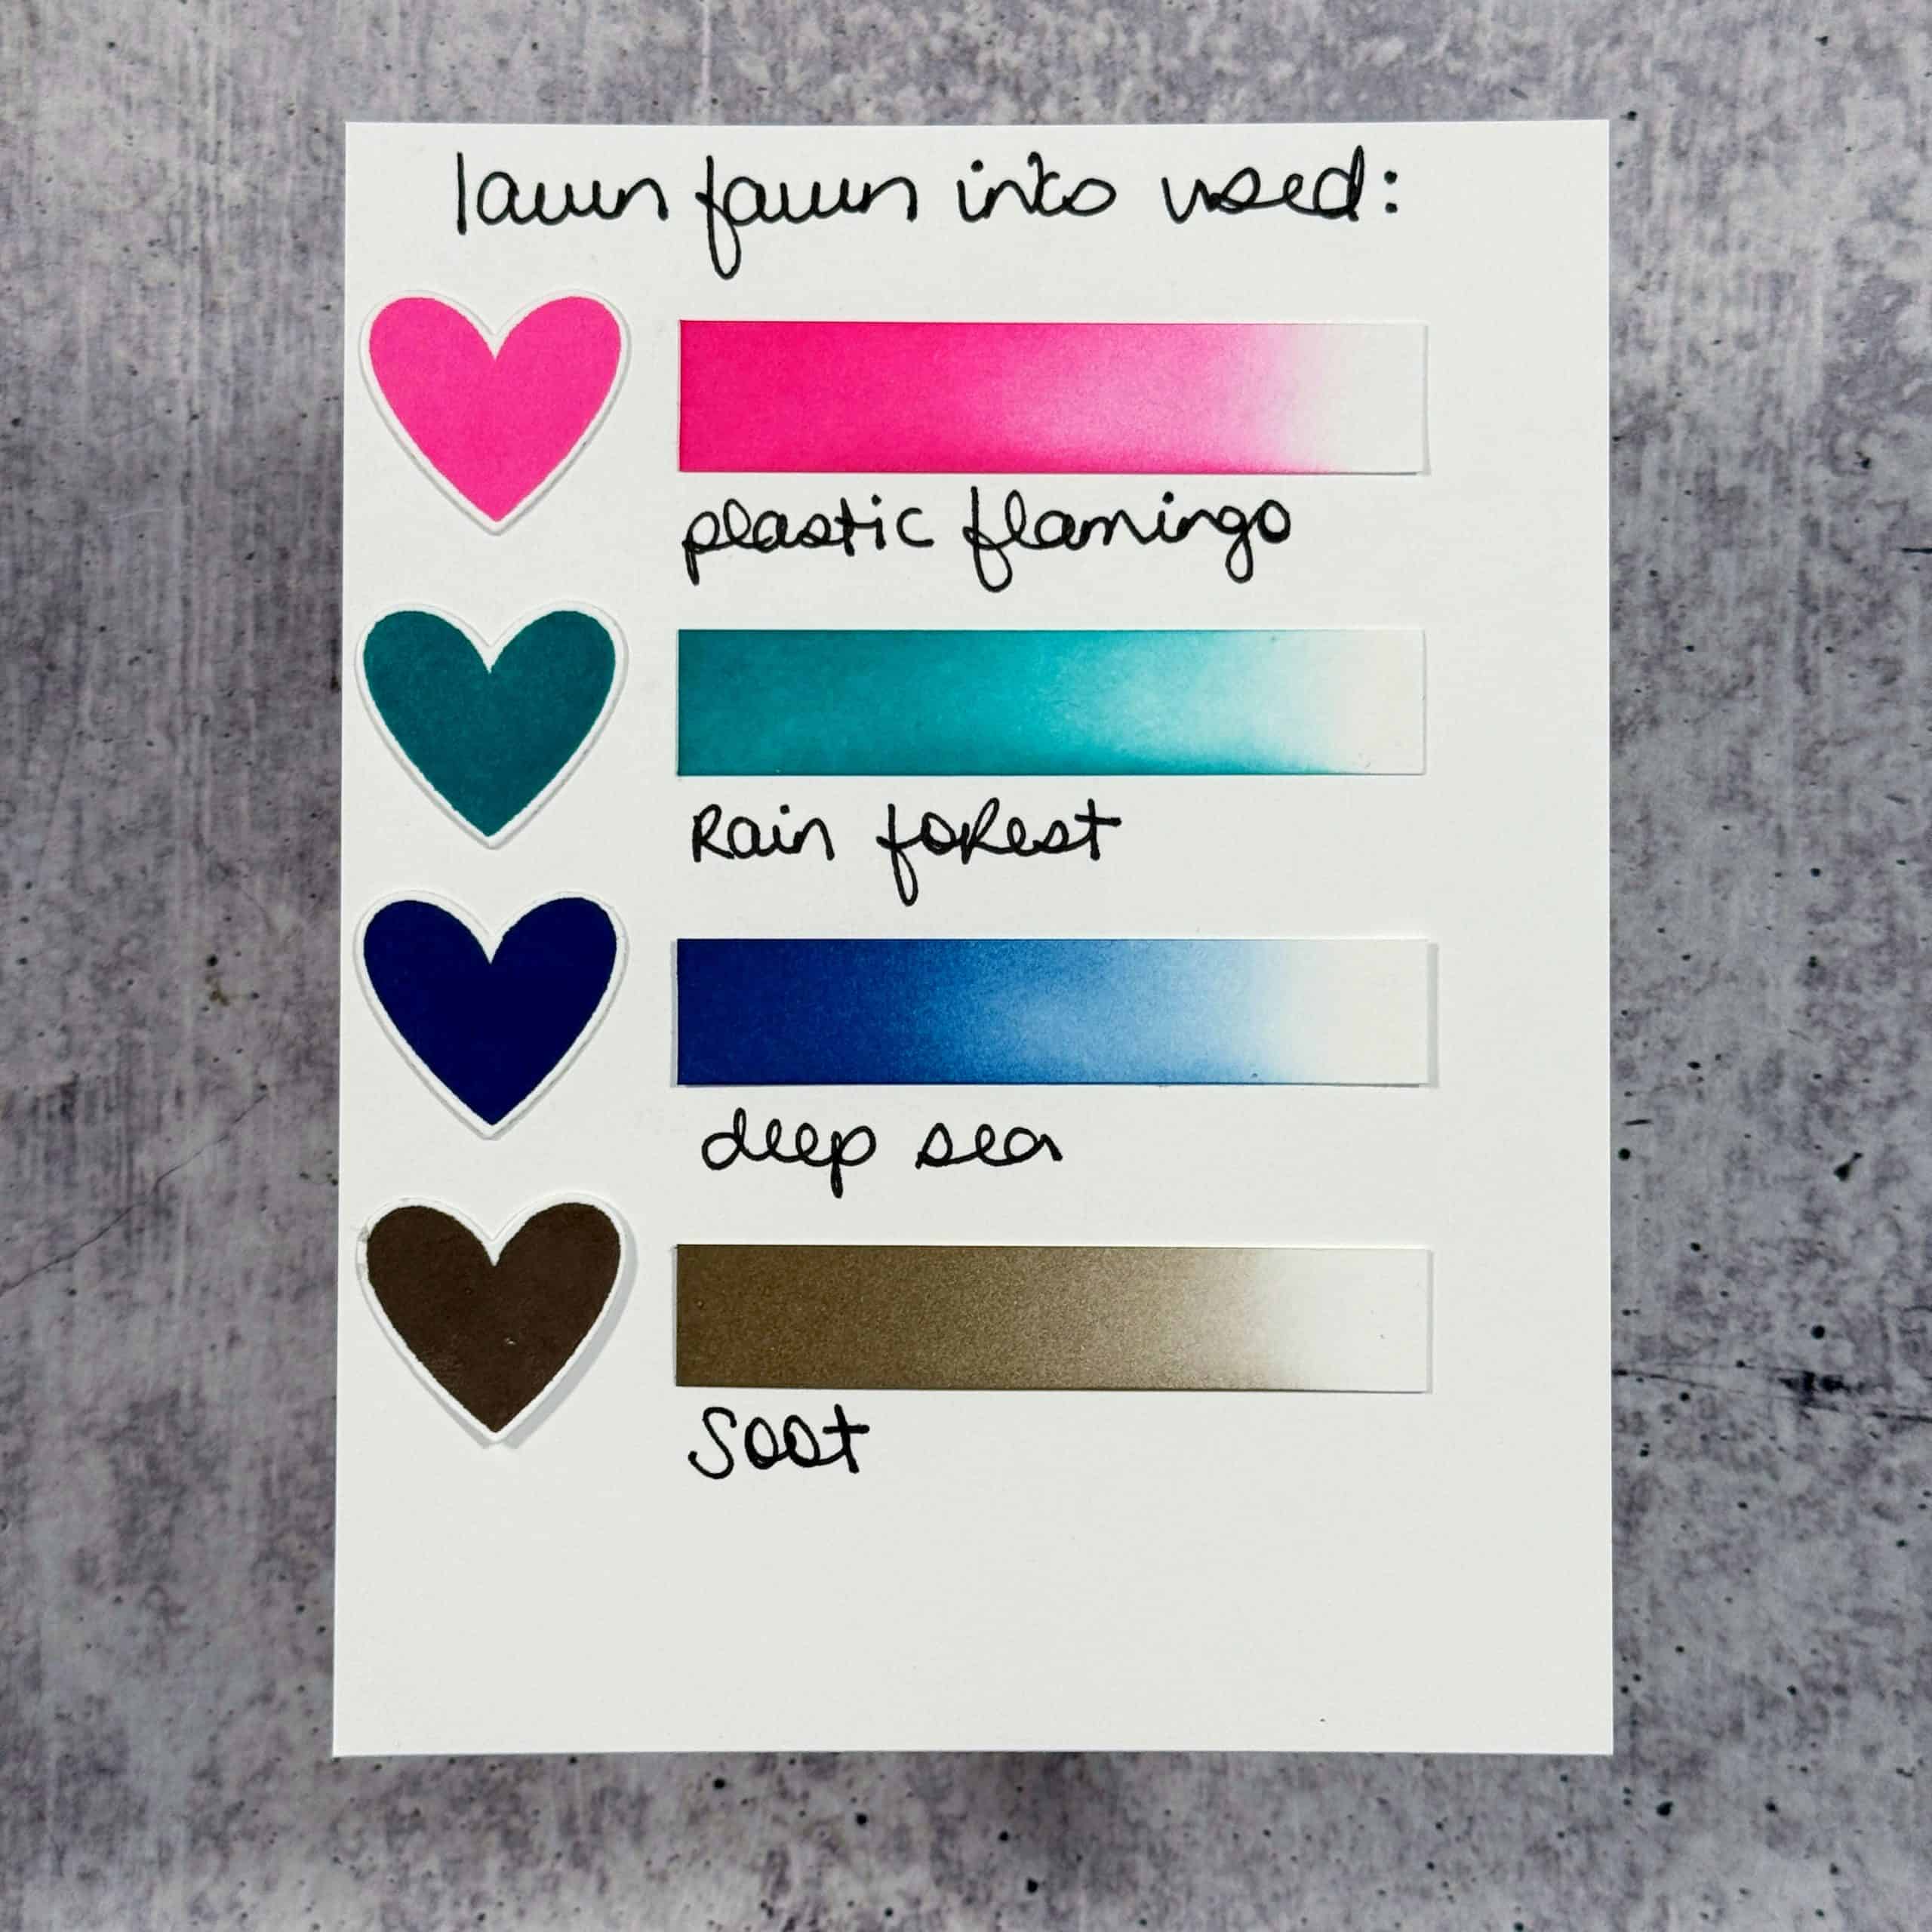 lawn fawn inks used:
plastic flamingo
Rain forest
deep sea
Soot